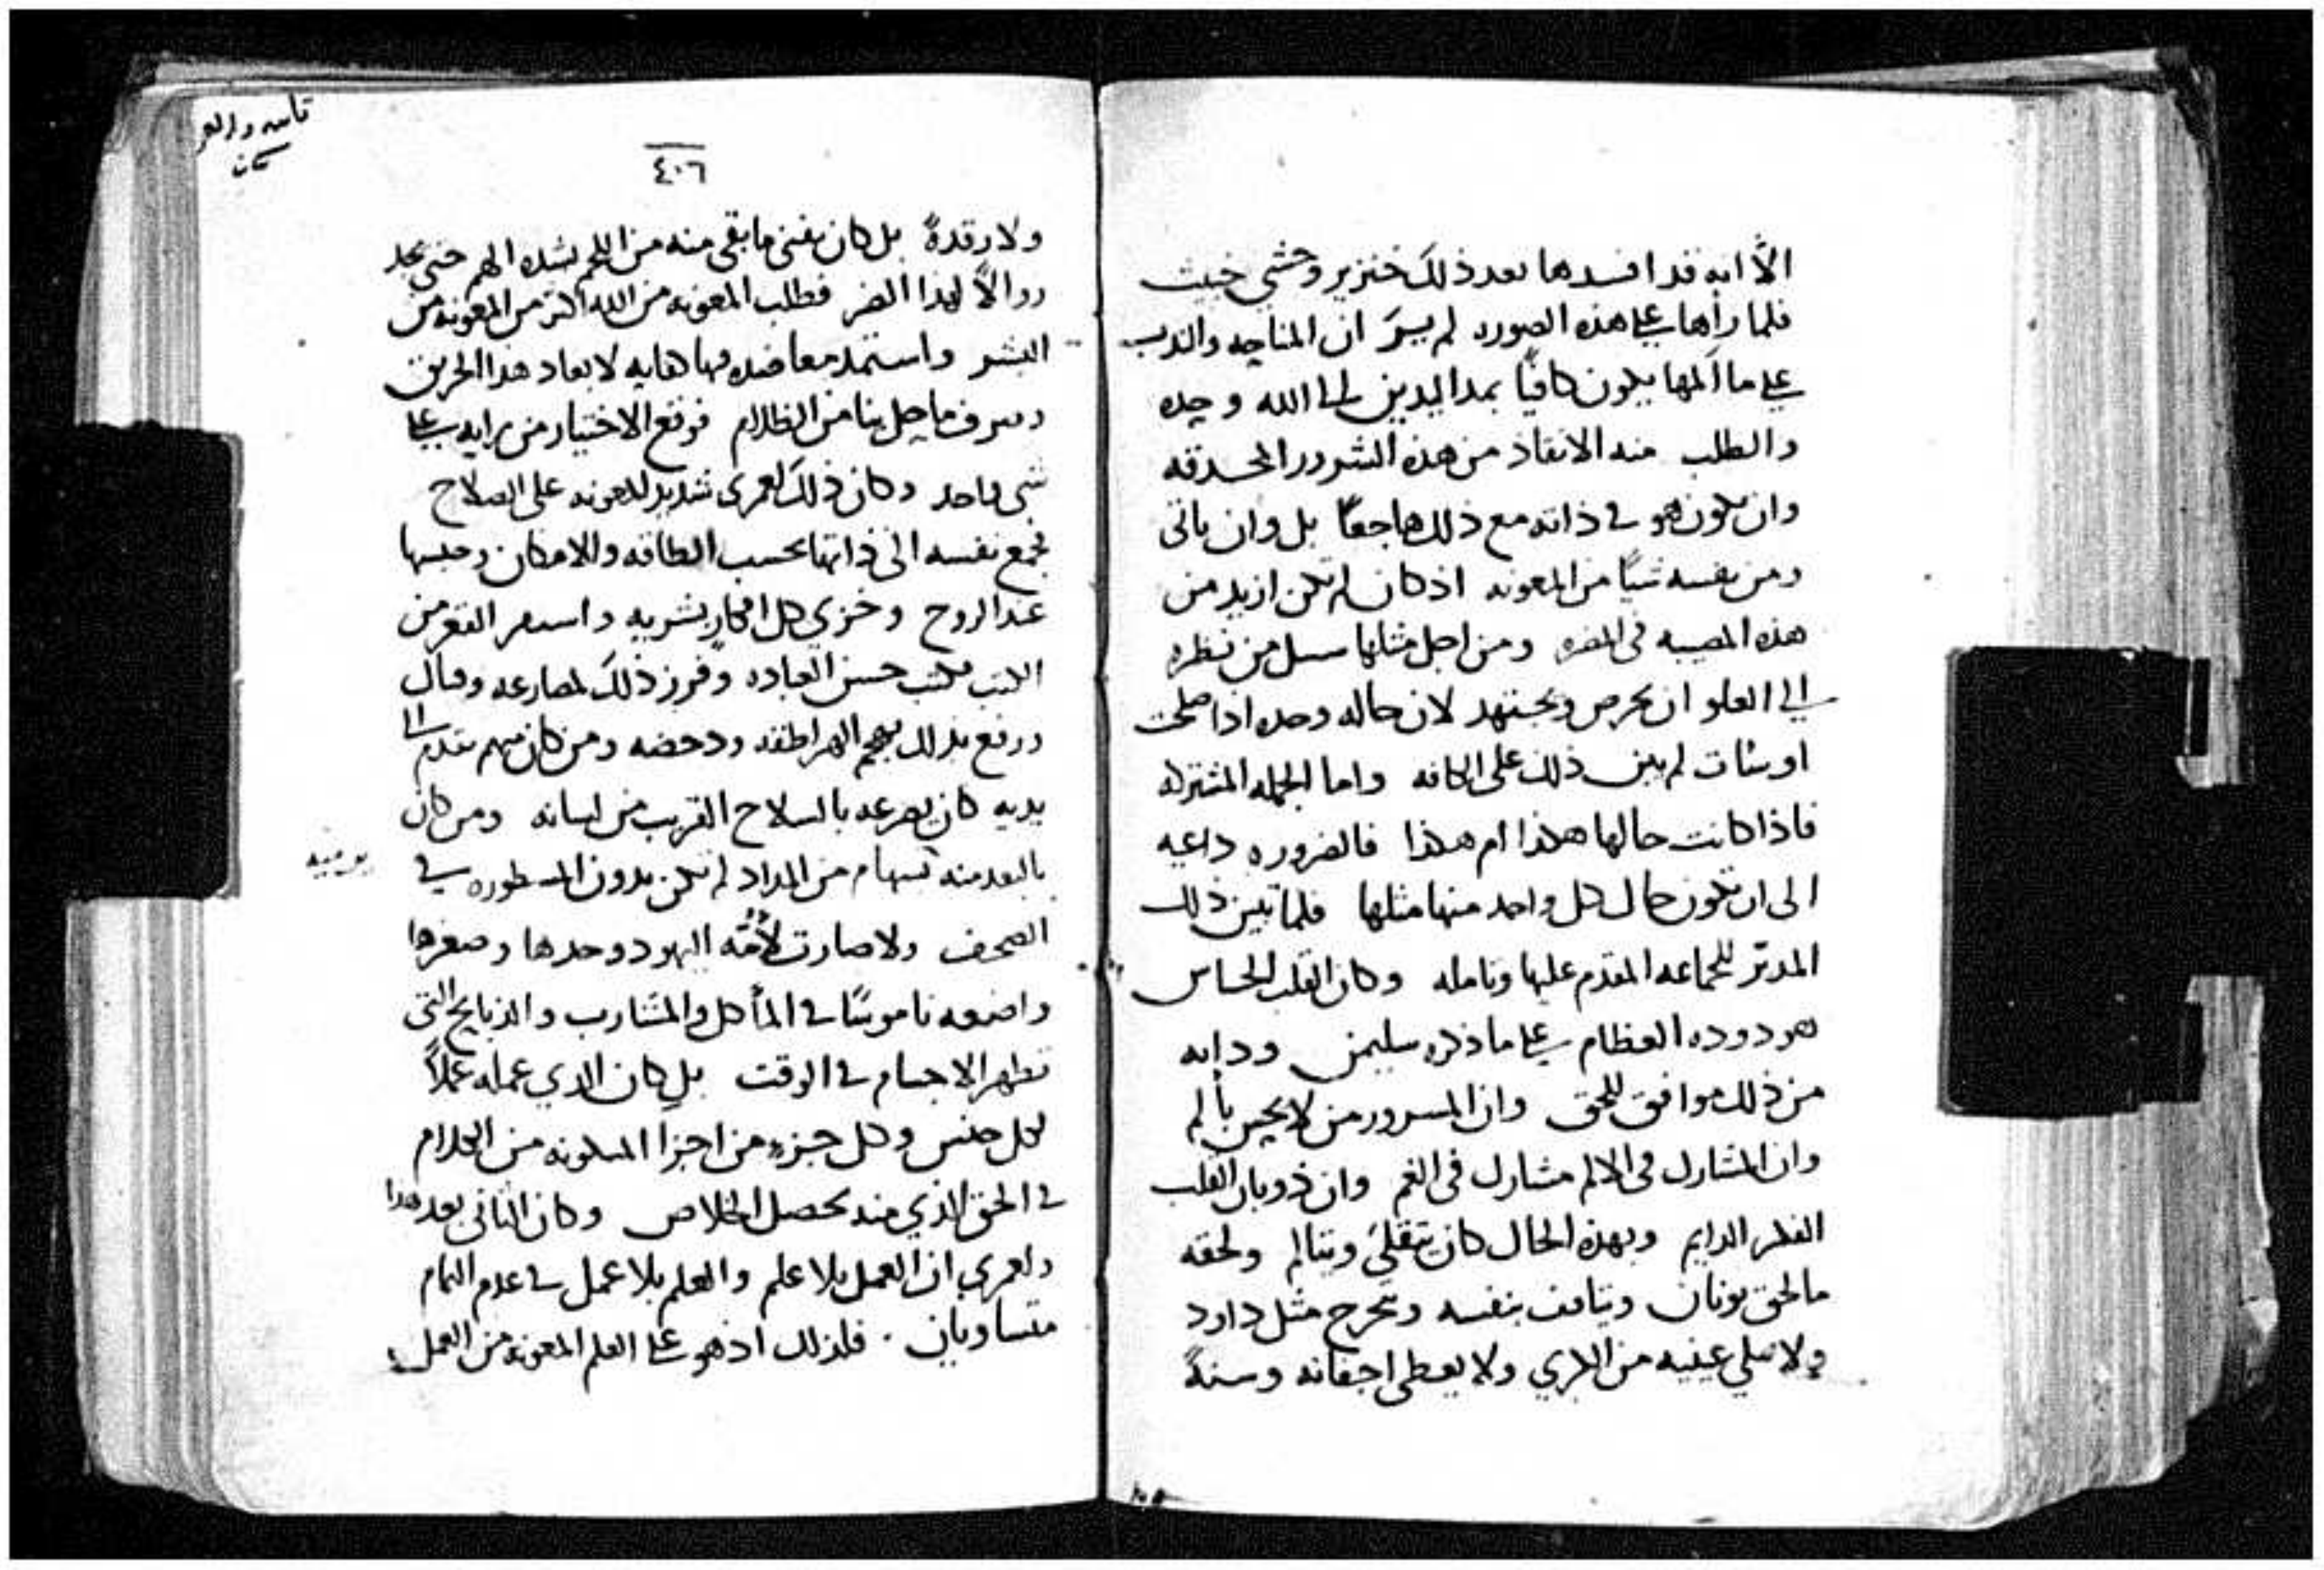 الّا انه قد افسدها بعد ذلك خنزير وحشي خبيث
فلما رأها على هذه الصوره لم ير ان المناجه والندب
على ما آلمها يكون كافيًا بمد اليدين الى الله وحده
والطلب منه الانقاذ من هذه الشرور المحدقه
وان يكون هو في ذاته مع ذلك هاجعًا بل وان ياتى
ومن نفسه شيًا من المعونه اذ كان لم تكن ازيد من
هذه المصيبه فى المضره ومن اجل مثلها سبيل من نظره
الى العلو ان يحرص ويجتهد لان حاله وحده اذا صلحت
او ساات لم يبن ذلك على الكافه واما الجمله المشتركه
فاذا كانت حالها هكذا ام هكذا فالضروره داعيه
الى ان تكون حال كل واحد منها مثلها فلما تبين ذلك
المدبّر للجماعه المقدم عليها وتامله وكان القلب الحساس
هو دوده العظام على ما ذكره سليمن ودابه
من ذلك موافق للحق وان المسرور من لا يحس بألم
وان المشارك فى الالم مشارك فى الغم وان ذوبان القلب
الفكر الدايم وبهذه الحال كان يتقلّى ويتالم ولحقه
ما لحق يونان ويتافف بنفسه ويحرج مثل داود
ولا يملي عينيه من الكري ولا يعطى اجفانه وسنةً
تاسع واربعو
كان
٤٠٦
ولا رقدةً بل كان يفنى ما بقى منه من اللحم بشده الهم حتى يجد
زوالاً لهذا الضر فطلب المعونه من الله اكثر من المعونه من
البشر واستمد معاضده منها هايه لابعاد هذا الحريق
وصرف ما حل بنا من الظلام فوقع الاختيار من رايه على
شى واحد وكان ذلك لعمرى شديد المعونه على الصلاح
فجمع نفسه الى ذاتها بحسب الطاقه والامكان وحبسها
عند الروح وخزي كل افكار بشريه واستعر التعز من
الكتب فكتب حسن العباده وفرز ذلك لمصارعه وقتال
ورفع بذلك تهجم الهراطقه ودحضه ومن كان منهم يتقدم الى
يديه كان يصرعه بالسلاح القريب من لسانه ومن كان
بالبعد منه بسهام من المداد لم تكن بدون المسطوره في
الصحف ولا صارت لأمّة اليهود وحدها وصغرها
واضعه ناموسًا في المأكل والمشارب والذبايح التى
تطهر الاجسام في الوقت بل كان الذي عمله عملاً
لكل جنس وكل جزء من اجزا المسكونه من الكلام
في الحق الذي منه يحصل الخلاص وكان الثانى بعد هذا
ولعمري ان العمل بلا علم والعلم بلا عمل في عدم التمام
متساويان . فلذلك اذ هو على العلم المعونه من العمل